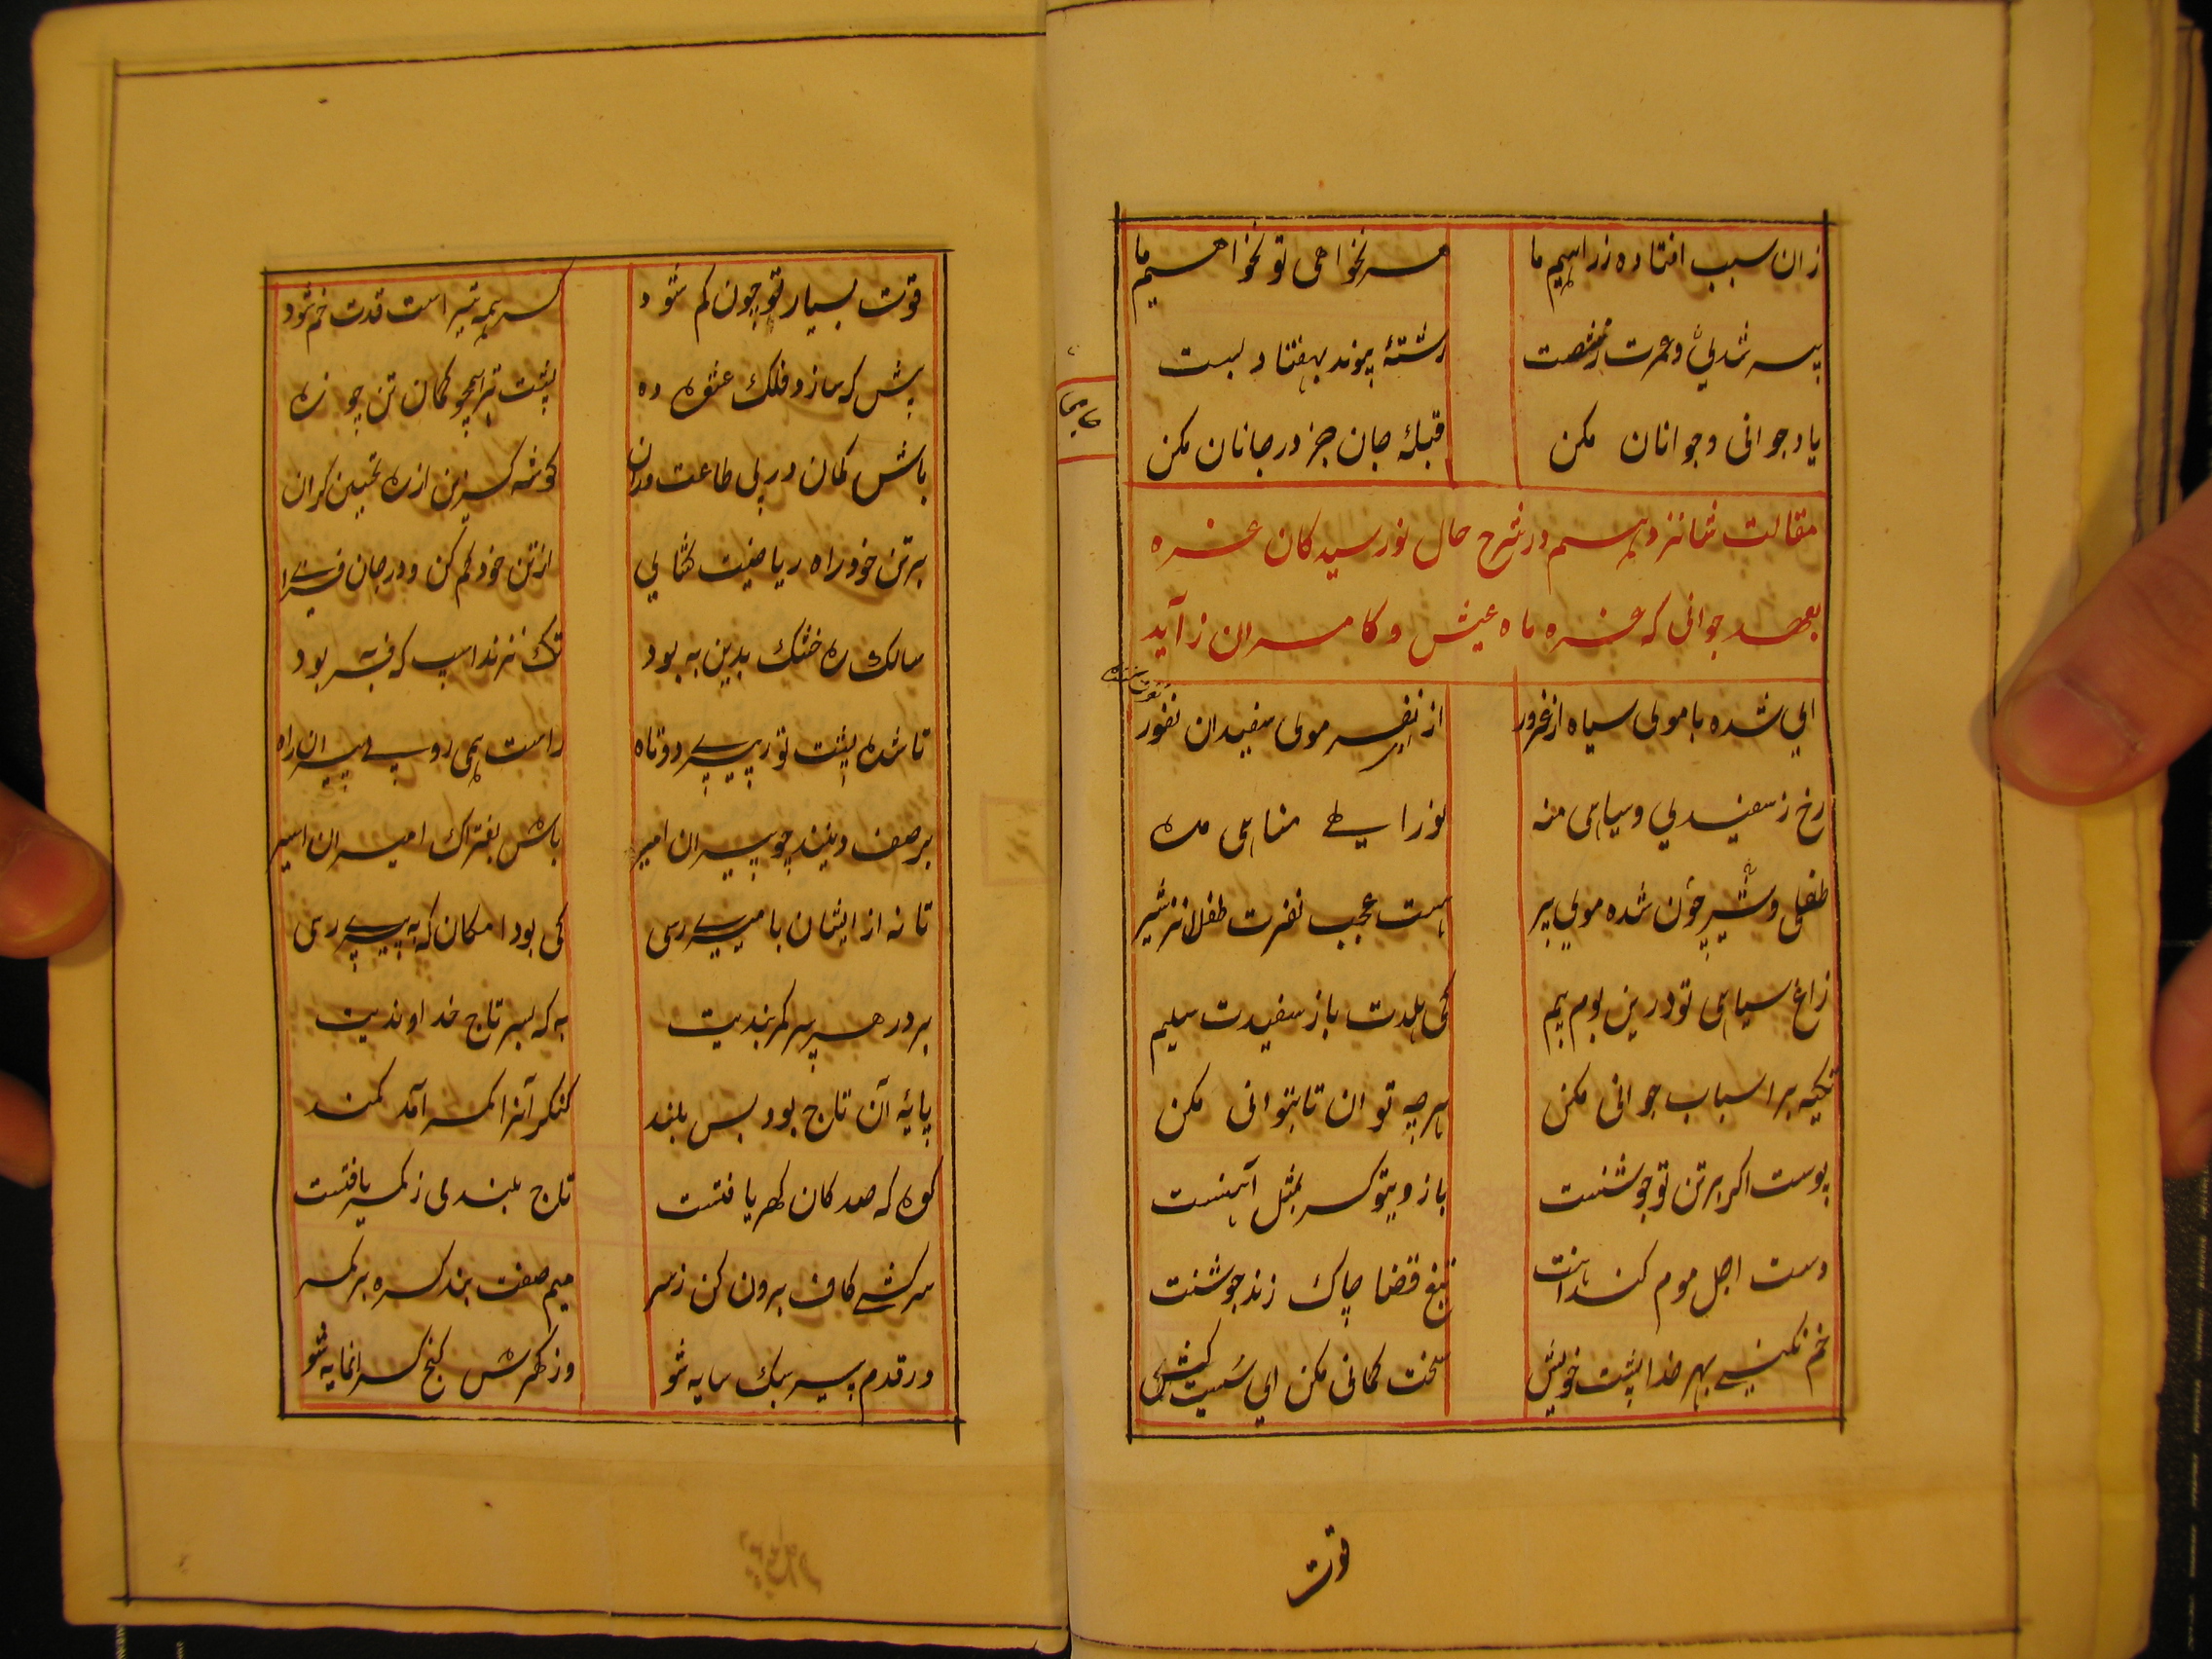 زان سبب افتاده ز راهیم ما هر نخواهی تو نخواهیم ما
پیر شدی و عمرت ز شصت رشتهٔ پیوند بهفتاد بست
یاد جوانی و جوانان مکن قبلهٔ جان جز در جانان مکن
مقالت شانزدهم در شرح حال نورسیدکان غره
بعهد جوانی که غره ماه عیش و کامرانی آید
ای شده با موی سیاه از غرور از نفر موی سفیدان نفور
رخ ز سفیدی و سیاهی منه نور ایطی مناهی مده
طفلی و شیر چون شده موی پیر هست عجب نفرت طفلان ز شیر
زاغ سیاهی تو درین بوم بیم کی هلدت باز سفیدت سلیم
تکیه بر اسباب جوانی مکن هرچه توان تا بتوانی مکن
پوست اکر بر تن تو جوشنست بازوی تو کر بمثل آهنست
دست اجل موم کند آهنت تیغ قضا چاک زند جوشنت
خم نکنی بهر خدا پشت خویش سخت کمانی مکن ای سست کیش
قوت
قوت بسیار تو چون کم شود کر همه تیر است قدت خم شود
پیش که سازد فلک عشوه ده پشت ترا همچو کمان تن چو زه
باش کمان در پی طاعت وران کوشه کزین از ره تحسین کران
بر تن خود راه ریاضت کشای از تن خود کم کن و در جان فزای
سالک ره خشک بدین به بود تک نزند اسپ که فربه بود
تا شده پشت تو ز پیری دوتاه راست همی رو پی پیران راه
بر صف دینند چو پیران امیر باش بفتراک امیران اسیر
تا نه از ایشان بامیری رسی کی بود امکان که به پیری رسی
بر در هر پیر کمر بندیت به که بسر تاج خداوندیت
پایهٔ آن تاج بود بس بلند کنکر آنرا کمر آمد کمند
کوه که صد کان کهر یافتست تاج بلندی ز کمر یافتست
سرکشی کاف برون کن ز سر میم صفت بند کره بر کمر
در قدم پیر سبک سایه شو وز کهرش کنج کرانمایه شو